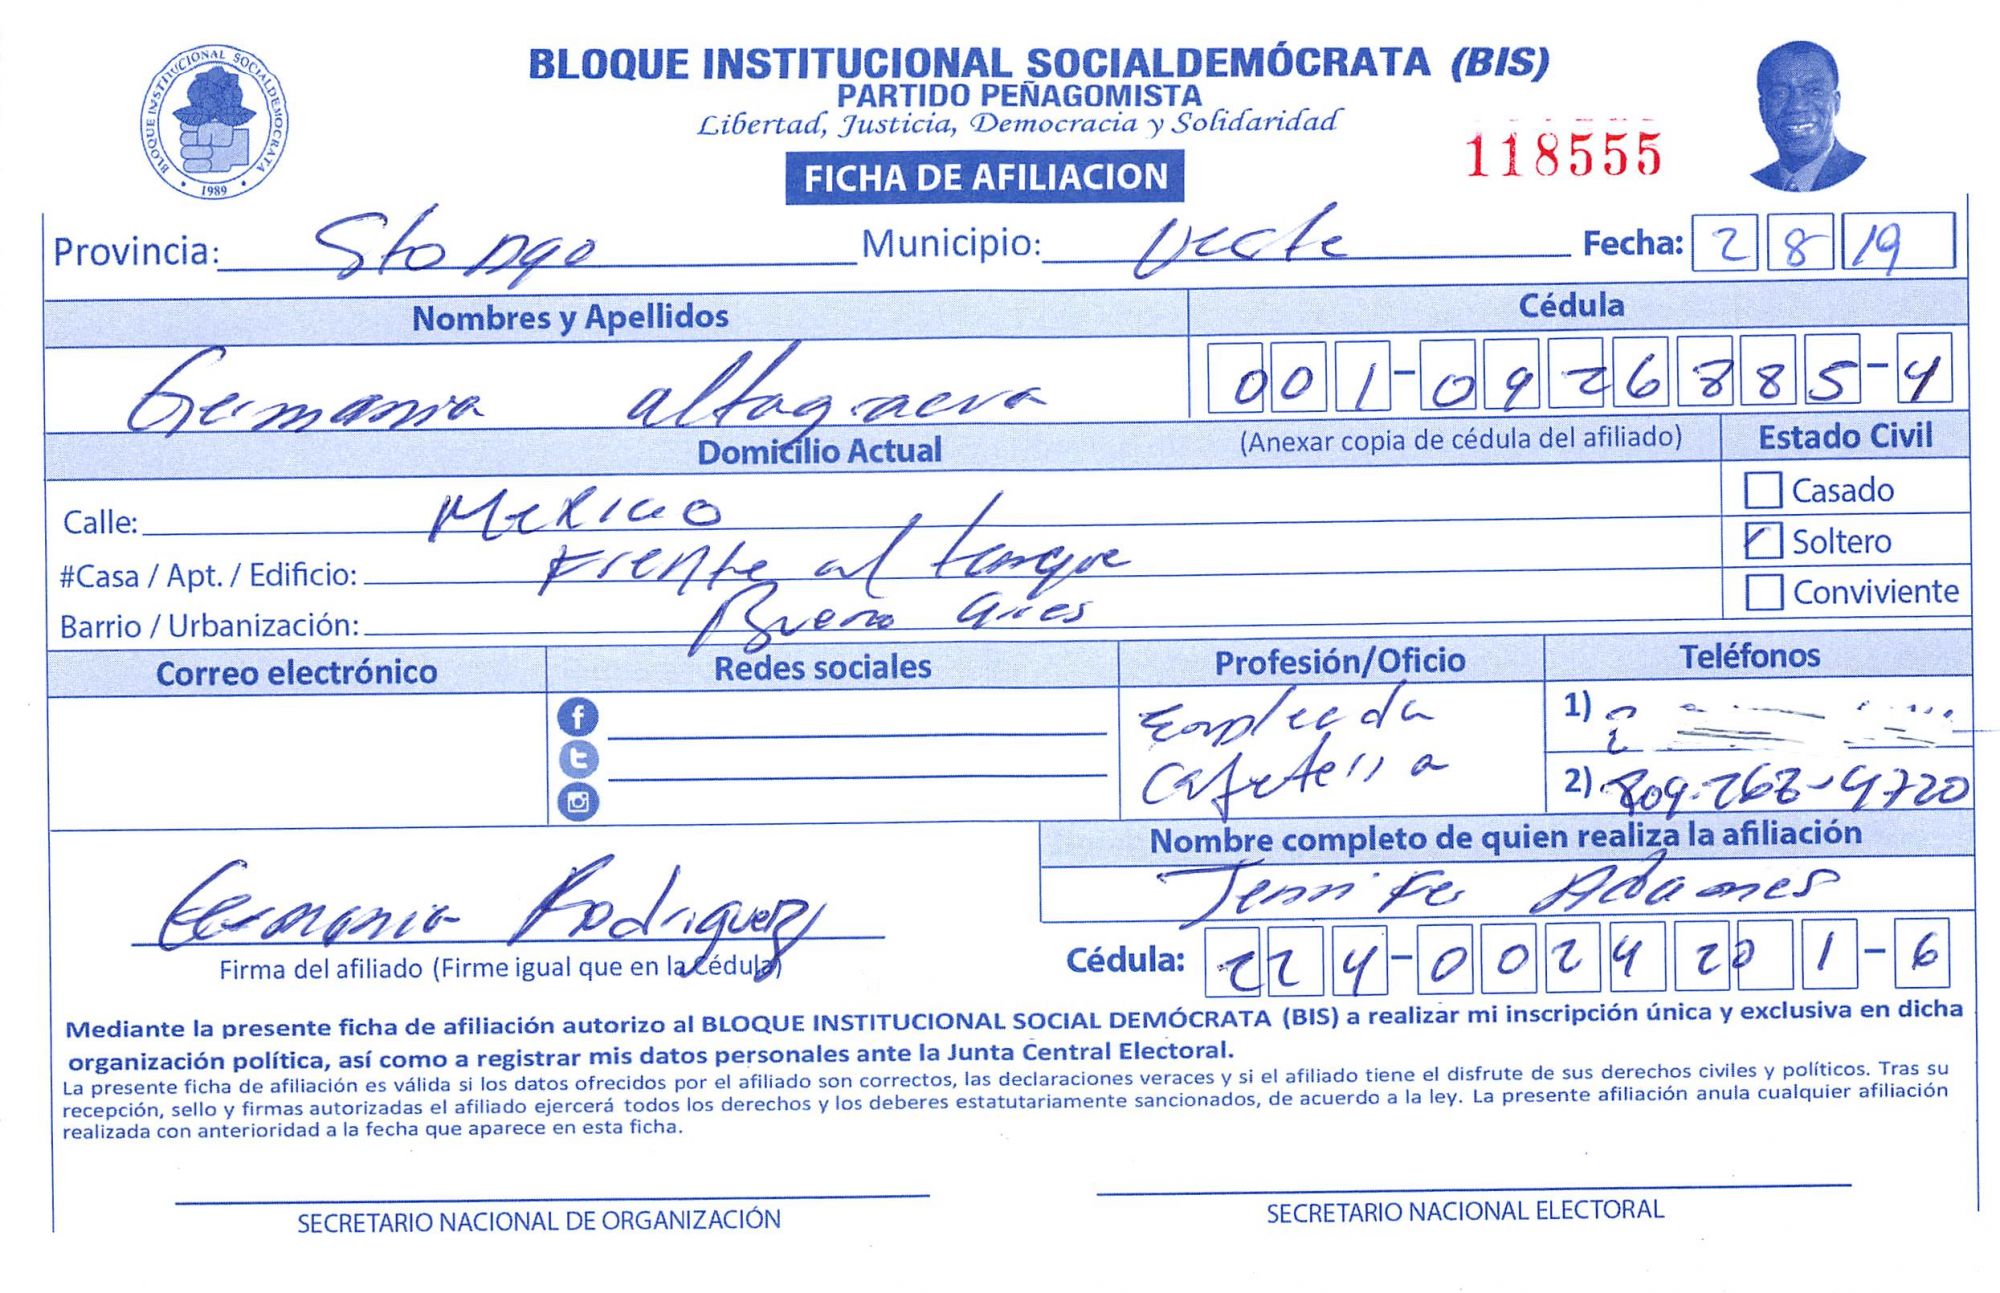 BLOQUE INSTITUCIONAL SOCIALDEMOCRATA
1989
BLOQUE INSTITUCIONAL SOCIALDEMÓCRATA (BIS)
PARTIDO PEÑAGOMISTA
Libertad, Justicia, Democracia y Solidaridad
118555
FICHA DE AFILIACION
Provincia: Sto Dgo Municipio: Oeste Fecha: 2 8 19
Nombres y Apellidos Cédula
Germania altagracia 001-0926885-4
Domicilio Actual (Anexar copia de cédula del afiliado) Estado Civil
Calle: Mexico Casado
#Casa / Apt. / Edificio: Frente al tanque Soltero
Barrio / Urbanización: Bueno aires Conviviente
Correo electrónico Redes sociales Profesión/Oficio Teléfonos
Empleada 1)
Cafeteria 2) 809-268-9720
Nombre completo de quien realiza la afiliación
Jennifer Adames
Germania Rodriguez
Firma del afiliado (Firme igual que en la Cédula) Cédula: 224-0024201-6
Mediante la presente ficha de afiliación autorizo al BLOQUE INSTITUCIONAL SOCIAL DEMÓCRATA (BIS) a realizar mi inscripción única y exclusiva en dicha
organización política, así como a registrar mis datos personales ante la Junta Central Electoral.
La presente ficha de afiliación es válida si los datos ofrecidos por el afiliado son correctos, las declaraciones veraces y si el afiliado tiene el disfrute de sus derechos civiles y políticos. Tras su
recepción, sello y firmas autorizadas el afiliado ejercerá todos los derechos y los deberes estatutariamente sancionados, de acuerdo a la ley. La presente afiliación anula cualquier afiliación
realizada con anterioridad a la fecha que aparece en esta ficha.
SECRETARIO NACIONAL DE ORGANIZACIÓN SECRETARIO NACIONAL ELECTORAL